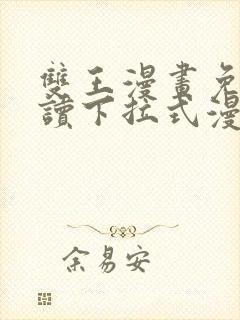 雙王漫畫免
讀下拉式漫
余易安